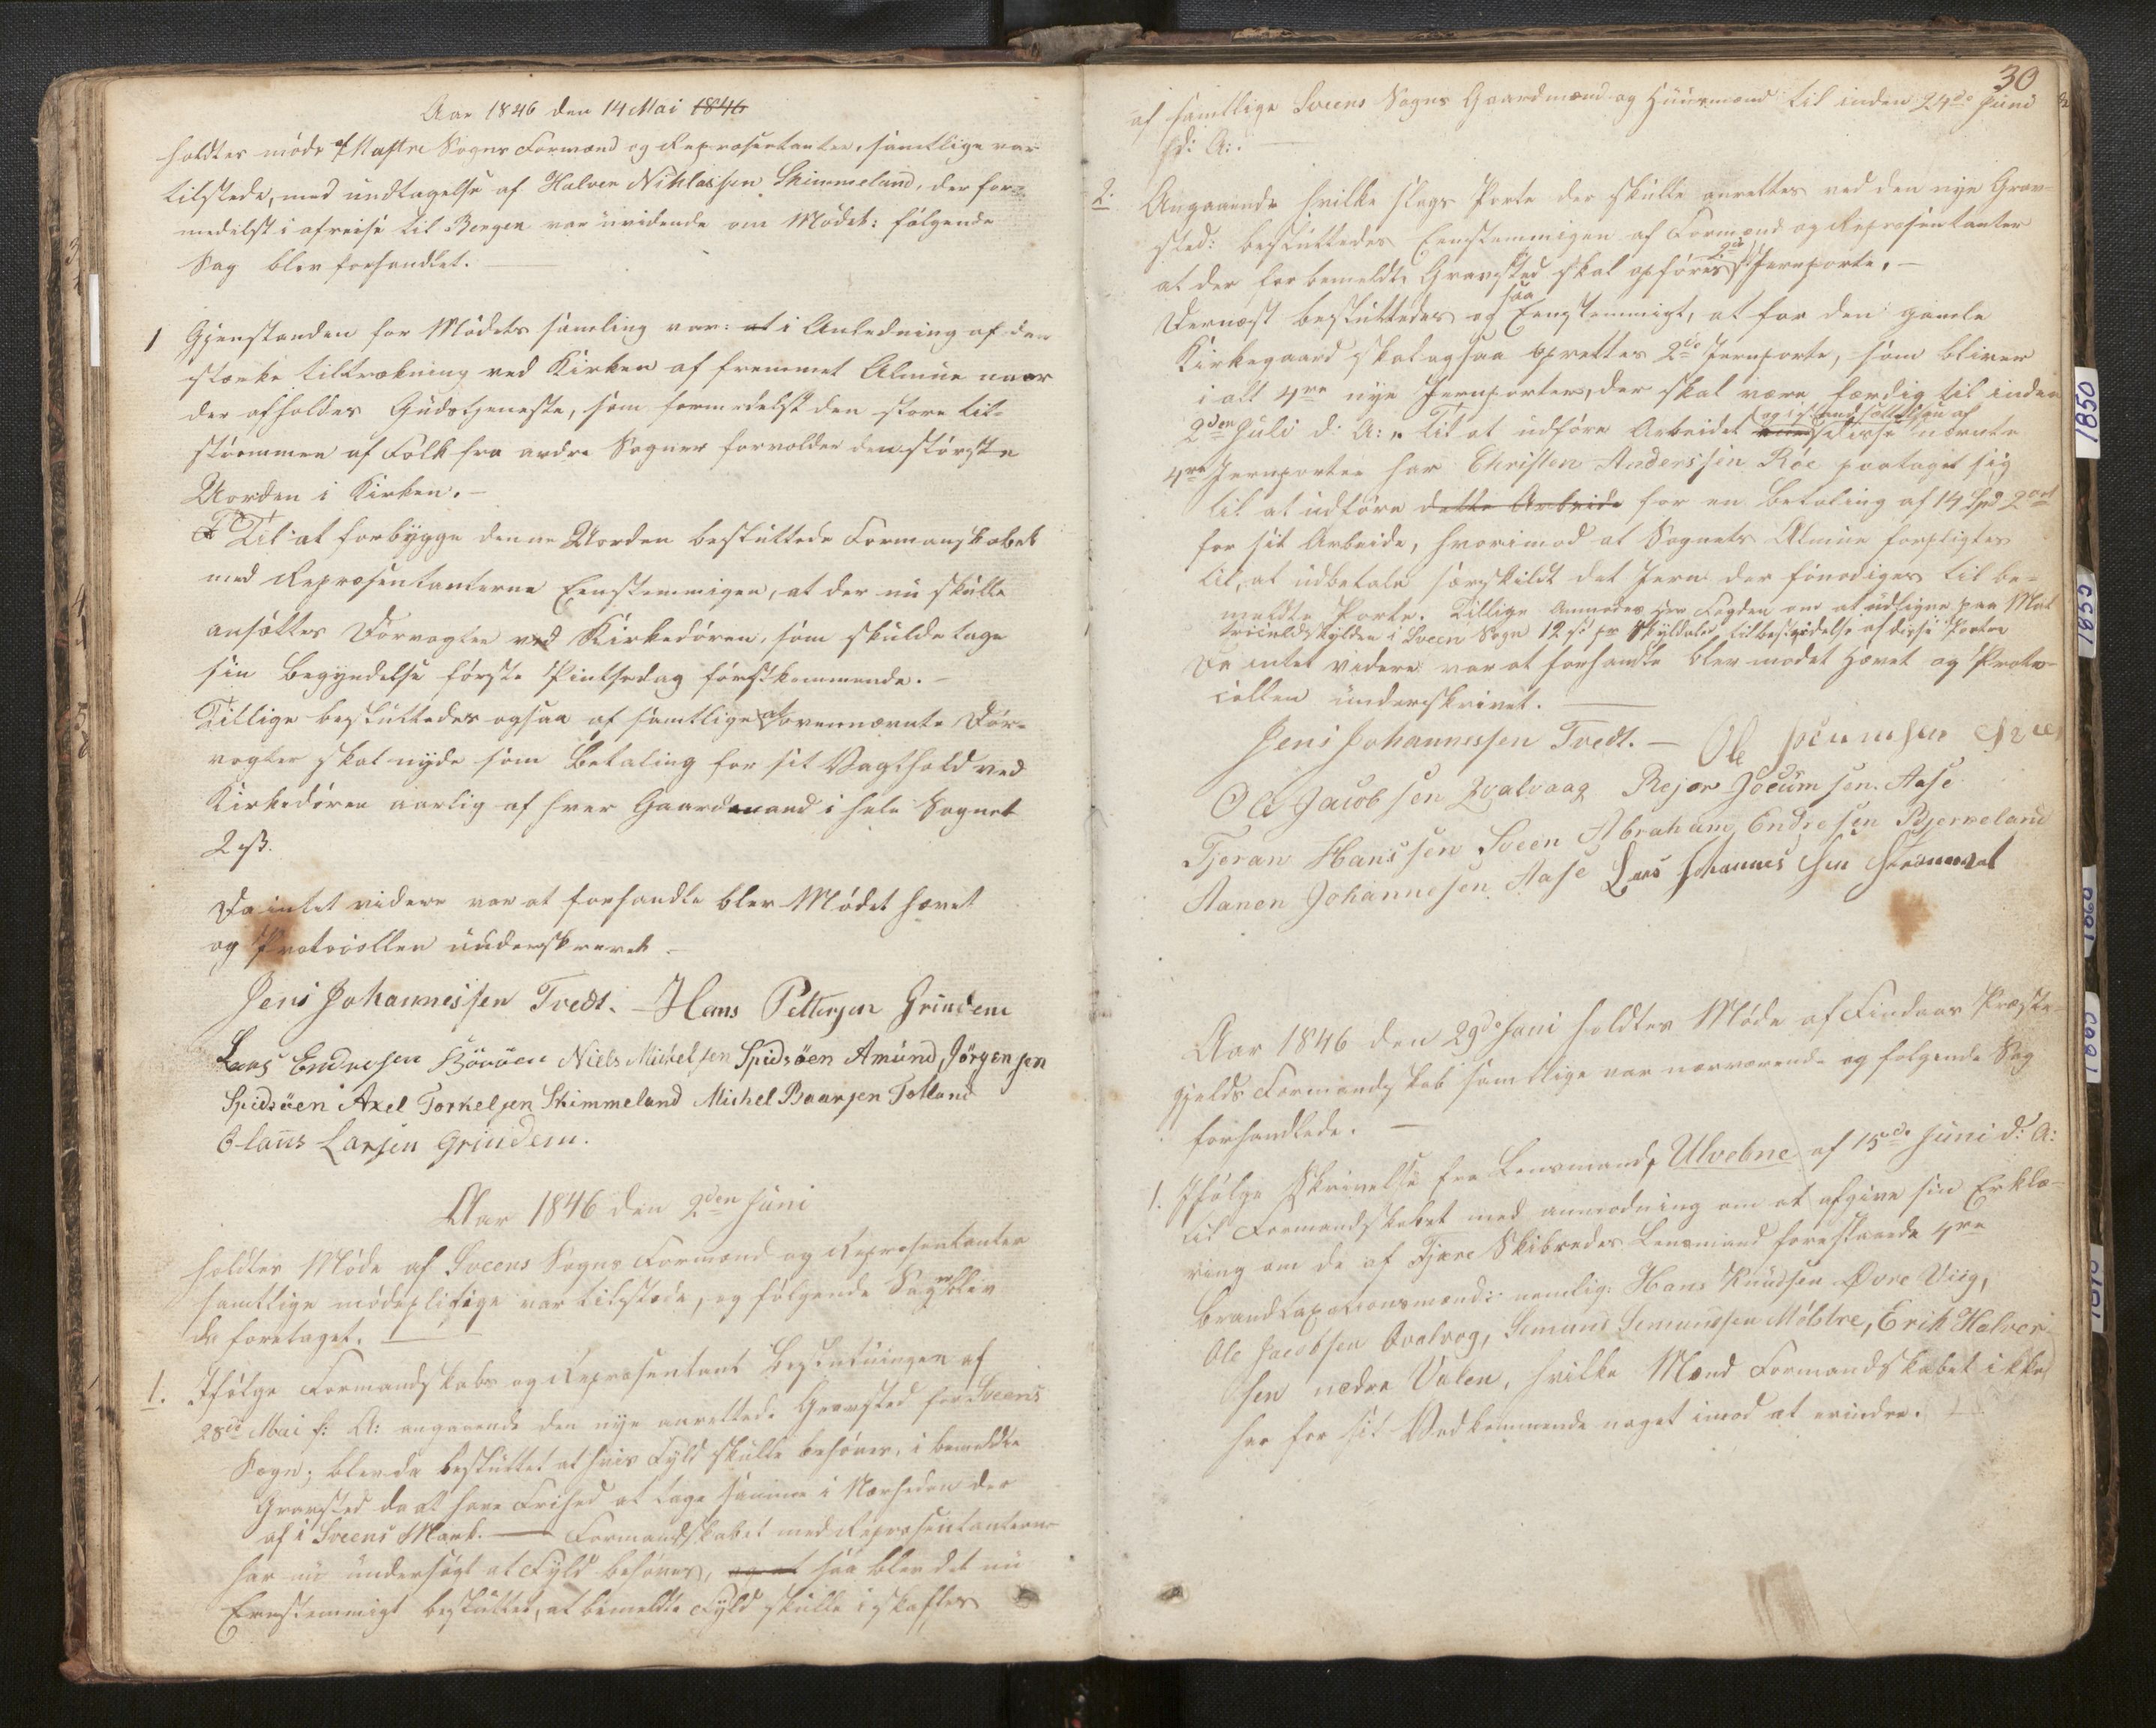 Aar 1846 den 14 Mai 1846
holdtes møde i Mostre Sogns Formænd og Repræsentanter, samtlige var
tilstede, med undtagelse af Halvor Nihlassen Skimmeland, der for-
medelst i afreise til Bergen var uvidende om Mødet: følgende
Sag blev forhandlet.
1 Gjenstanden for Mødets samling var: at i Anledning af den
stærke tiltrækning ved Kirken af fremmet Almue naar
der afholdes Gudstjeneste, som formedelst den store til-
strømmen af Folk fra andre Sogner forvolder den største
Uorden i Kirken.
Til at forbygge denne Uorden besluttede Formanskabet
med Repræsentanterne Eenstemmigen, at der nu skulle
ansættes Dørvogter ved Kirkedøren, som skulde tage
sin Begyndelse første Pintsedag førstkommende.
Tillige besluttedes ogsaa af samtlige at ovennævnte Dør-
vogter skal nyde som Betaling for sit Vagthold ved
Kirkedøren aarlig af hver Gaardmand i hele Sognet
2 ß.
Da intet videre var at forhandle blev Mødet hævet
og Protocollen underskrevet.
Jens Johannessen Tvedt. Hans Pettersen Grindem
Lars Endresen Børøen Niels Mickelsen Spidsøen Amund Jörgensen
Spidsøen Axel Torkelsen Skimmeland Michel Baarsen Totland
Claus Larsen Grindem.
Aar 1846 den 2den Juni
holdtes Møde af Sveens Sogns Formænd og Repræsentanter
samtlige mødepligtige var tilstede, og følgende Sager blev
da foretaget.
1. Ifølge Formandskabs og Repræsentant Beslutningen af
28de Mai f: A: angaaende den nye anrettede Gravsted for Sveens
Sogn; blev da besluttet at hvis Fyld skulle behøves, i bemeldte
Gravsted da at have Frihed at tage samme i Nærheden der
af i Sveens Mark. Formandskabet med Repræsentanterne
har nu undersøgt at Fyld behøves, og at saa blev det nu
Eenstemmigt besluttet, at bemeldte Fyld skulle iskaffes
30
af samtlige Sveens Sogns Gaardmænd og Huusmænd til inden 24de Juni
d: A:
2. Angaaende hvilke slags Porte der skulle anrettes ved den nye Grav-
sted: besluttedes Eenstemmigen af Formænd og Repræsentanter
at der for bemeldte Gravsted skal opføres 2de Jernporte,
Dernæst besluttedes og saa Eenstemmigt, at for den gamle
Kirkegaard skal ogsaa oprettes 2de Jernporte, som bliver
i alt 4re nye Jernporter, der skal være færdig til inden
2den Juli d: A: Til at udføre Arbeidet og istandsættelsen af disse nævnte
4re Jernporter har Christen Anderssen Röe paataget sig
til at udføre dette Arbeide for en Betaling af 14 Spd 2 ort
for sit Arbeide, hvorimod at Sognets Almue forpligtes
til, at udbetale særskildt det Jern der fornødiges til be-
meldte Porte. Tillige Anmodes Hr Fogden om at udligne paa Mat-
triculskylden i Sveen Sogn 12 ß pr Skylddaler til bestridelse af disse Porter
Da intet videre var at forhandle blev mødet hævet og Proto-
collen underskrivet.
Jens Johannessen Tvedt. Ole
Ole Jacobsen Qvalvaag Rejer Jocumsen Aase
Tjeran Hanssen Sveen Abraham Endresen Bjerneland
Aanen Johannesen Aase Lars Johannessen
Aar 1846 den 29de Juni holdtes Møde af Findaas Præste-
gjelds Formandskab samtlige var nærværende og følgende Sag
forhandlede.
1. Ifølge Skrivelse fra Lensmand Ulvebne af 15de Juni d: A:
til Formandskabet med anmodning om at afgive sin Erklæ-
ring om de af Fjære Skibredes Lensmand forestaaede 4re
Brandtaxationsmænd: nemlig: Hans Knudsen Øvre Viig,
Ole Jacobsen Qvalvog, Semund Semundsen Møbstre, Erik Halvor-
sen nedre Valen, hvilke Mænd Formandskabet ikke
har for sit Vedkommende noget imod at erindre.
1850
1855
1860